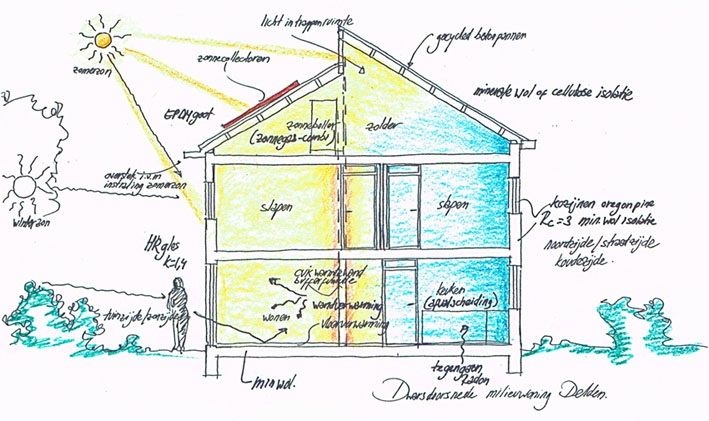 licht in trappenruimte
gecycled betonpannen
zonnecollectoren
zomerzon
minerale wol of cellulose isolatie
EPDM goot
zonneboiler
(zonnegas-combi)
zolder
overstek i.v.m
instraling zomerzon
winterzon
slapen
slapen
kozijnen oregon pine
Rc=3 min. wol isolatie
noordzijde/straatzijde
koudezijde.
HR glas
k=1,4
bufferfunctie
wandverwarming
wonen
vloerverwarming
keuken
(afvalscheiding)
tuinzijde/zonzijde
min. wol.
tegengaan
radon
Dwarsdoorsnede milieuwoning Delden.